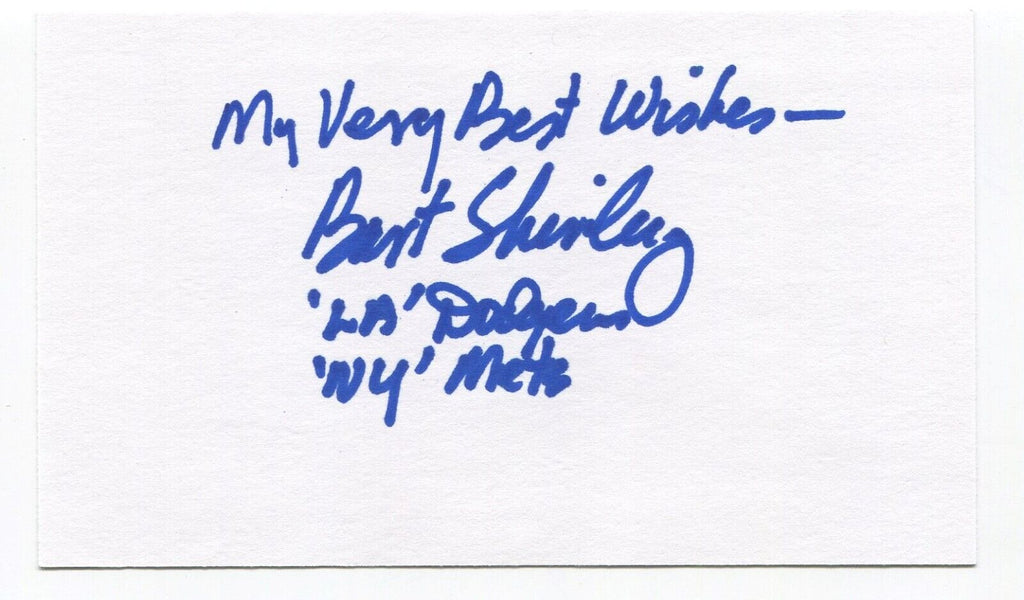 My Very Best Wishes —
Bart Shirley
'LA' Dodgers
'NY' Mets